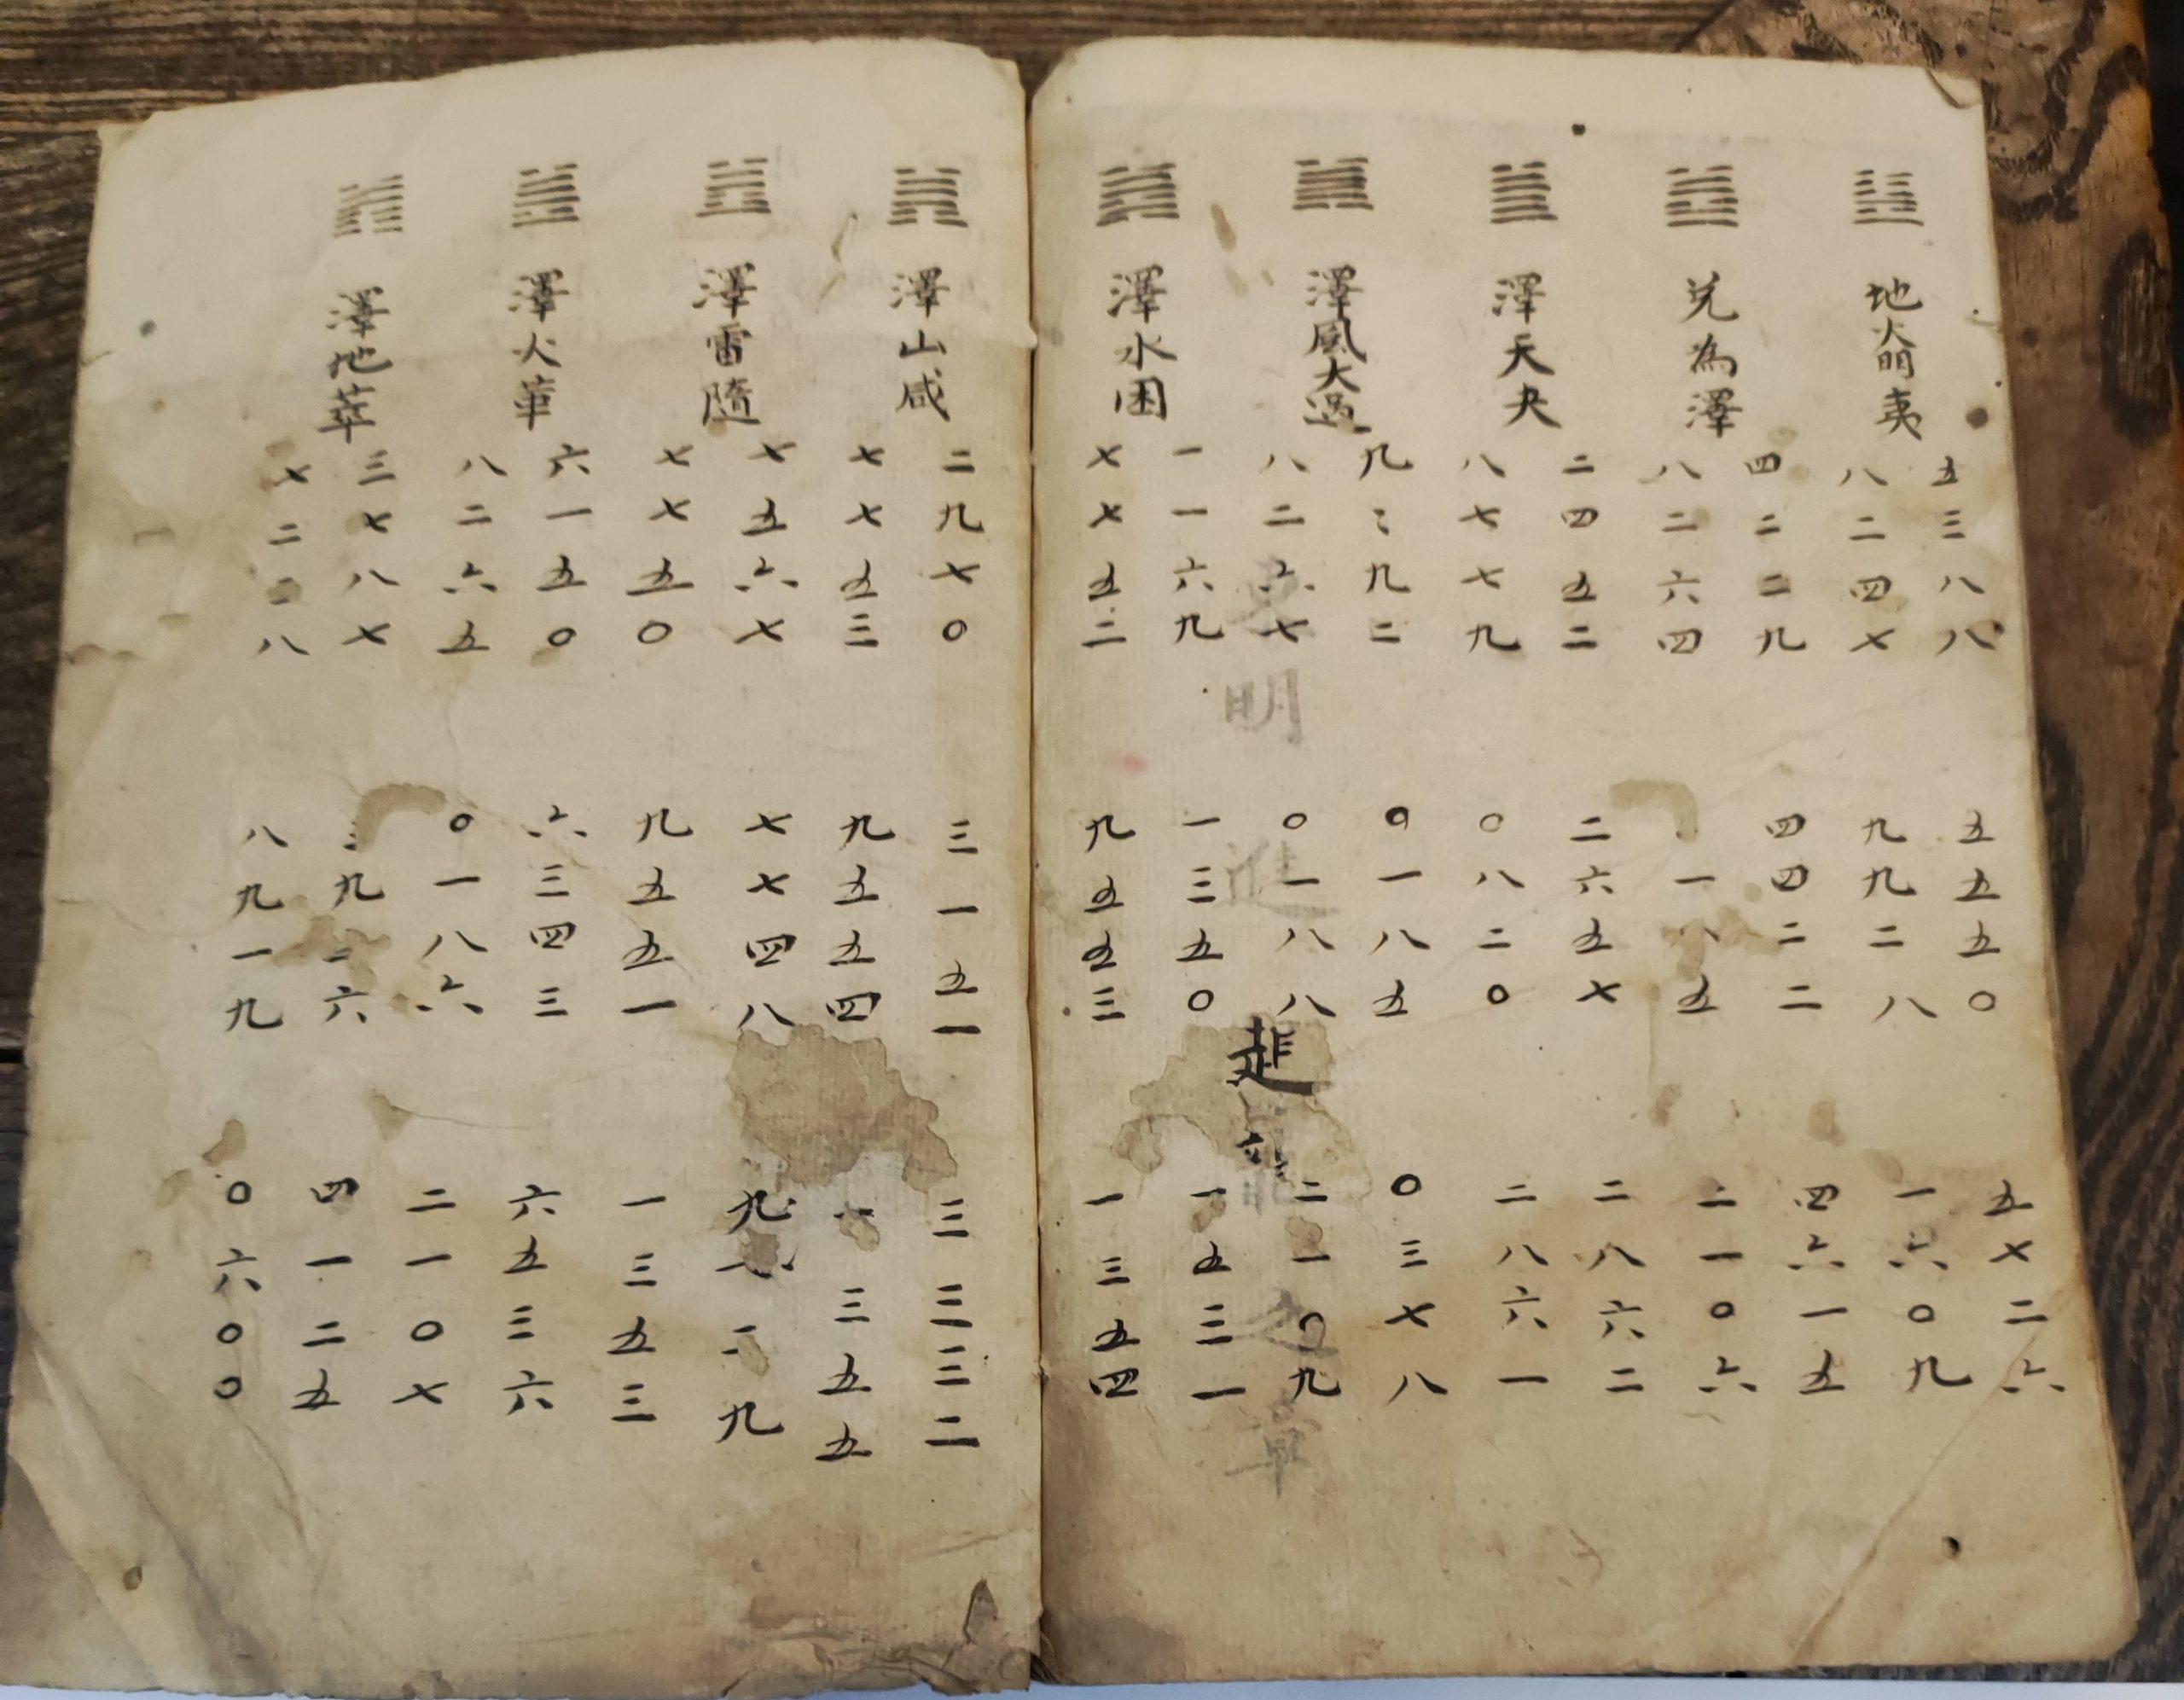 地火明夷
五三八八 五五五〇 五七二六
八二四七 九九二八 一六〇九
兌為澤
四二二九 四四二二 四六一五
八二六四 一八五 二一〇六
澤天夬
二四五二 二六五七 二八六二
八七七九 〇八二〇 二八六一
澤風大過
九二九二 〇一八五 〇三七八
八二六七 〇一八八 二一〇九
明進進之章
澤水困
一一六九 一三五〇 一五三一
七七五二 九五五三 一三五四
澤山咸
二九七〇 三一五一 三三三二
七七五三 九五五四 三五五
澤雷隨
七五六七 七七四八 九二九
七七五〇 九五五一 一三五三
澤火革
六一五〇 六三四三 六五三六
八二六五 〇一八六 二一〇七
澤地萃
三七八七 三九二六 四一二五
七二二八 八九一九 〇六〇〇